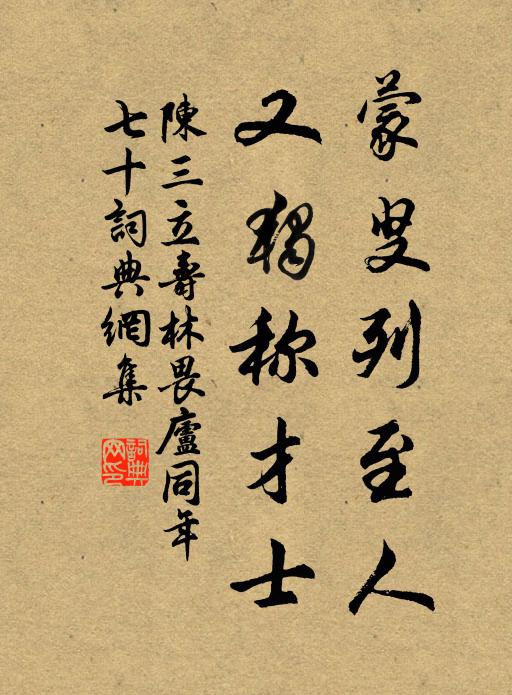 蒙叟列至人
又獨称才士
陳三立壽林畏廬同年
七十詞典網集
詞典
网印